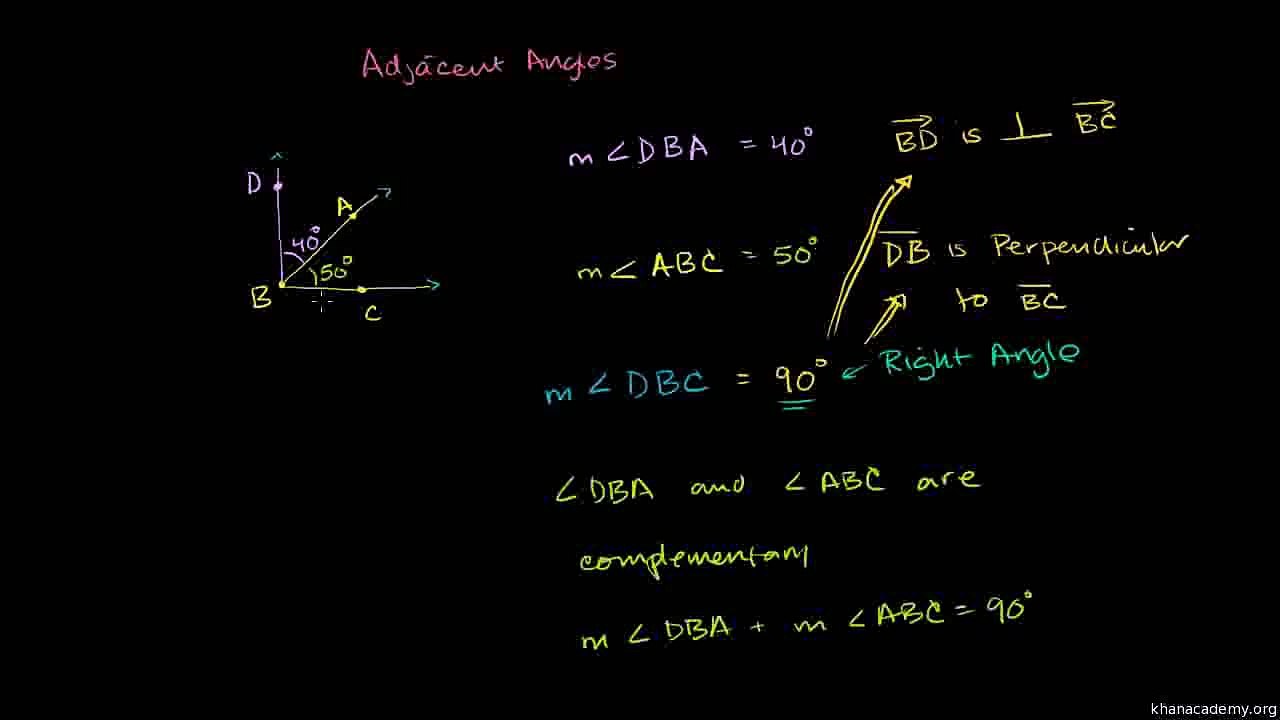 Adjacent Angles
m ∠DBA = 40°
BD is ⊥ BC
D
A
40°
50°
B
C
m∠ABC = 50°
DB is Perpendicular
to BC
m ∠DBC = 90°
Right Angle
∠DBA and ∠ABC are
complementary
m ∠DBA + m ∠ABC = 90°
khanacademy.org